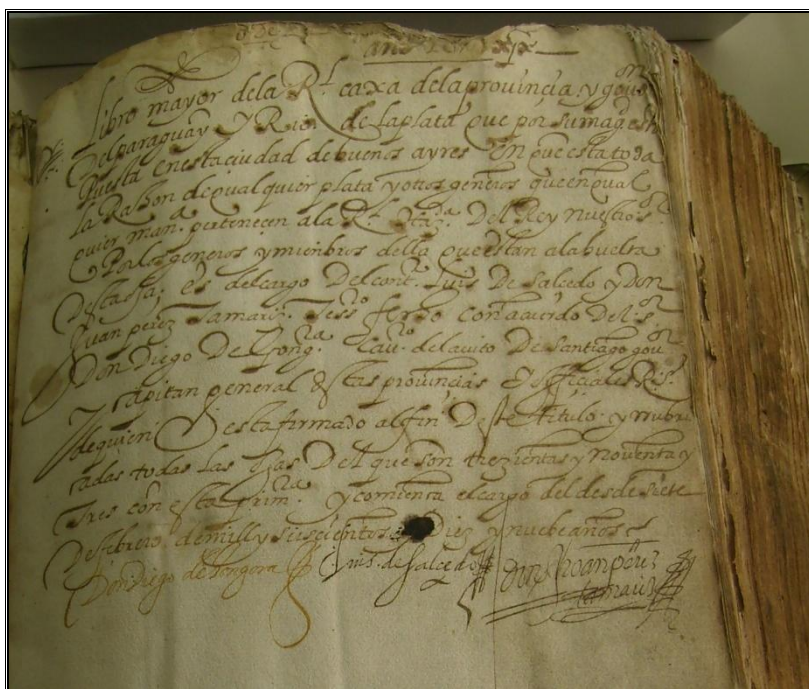 Libro mayor dela Rl caxa dela provincia, y gov.on
Del paraguay Y Rio de la plata que por su magesd.
Puesta en esta ciudad de buenos ayres En que esta toda
la Razon de qual quier plata y otros generos que en qual
quier man.a pertenecen ala Rl Haz.da Del Rey nuestro s.or
Por los generos y mienbros della que estan ala buelta
Desta oja; es del cargo Del cont.or Luis De Salcedo y Don
Juan perez Tamariz. Tess.ro fecho con acuerdo Del s.or
Don Diego De Gong.ra Cav.ro del avito De Santiago gov.or
Y capitan general destas provincias Y officiales R.s
de quien esta firmado al fin Deste titulo y rubri
cadas todas las ojas Del que son trezientas y noventa y
Tres con esta prim.ra y comienca el cargo del desde siete
De febrero de mill y seiscientos Diez y nuebe años
Don Diego de Gongora Luis de Salcedo Don Jhoan pérez
tamariz